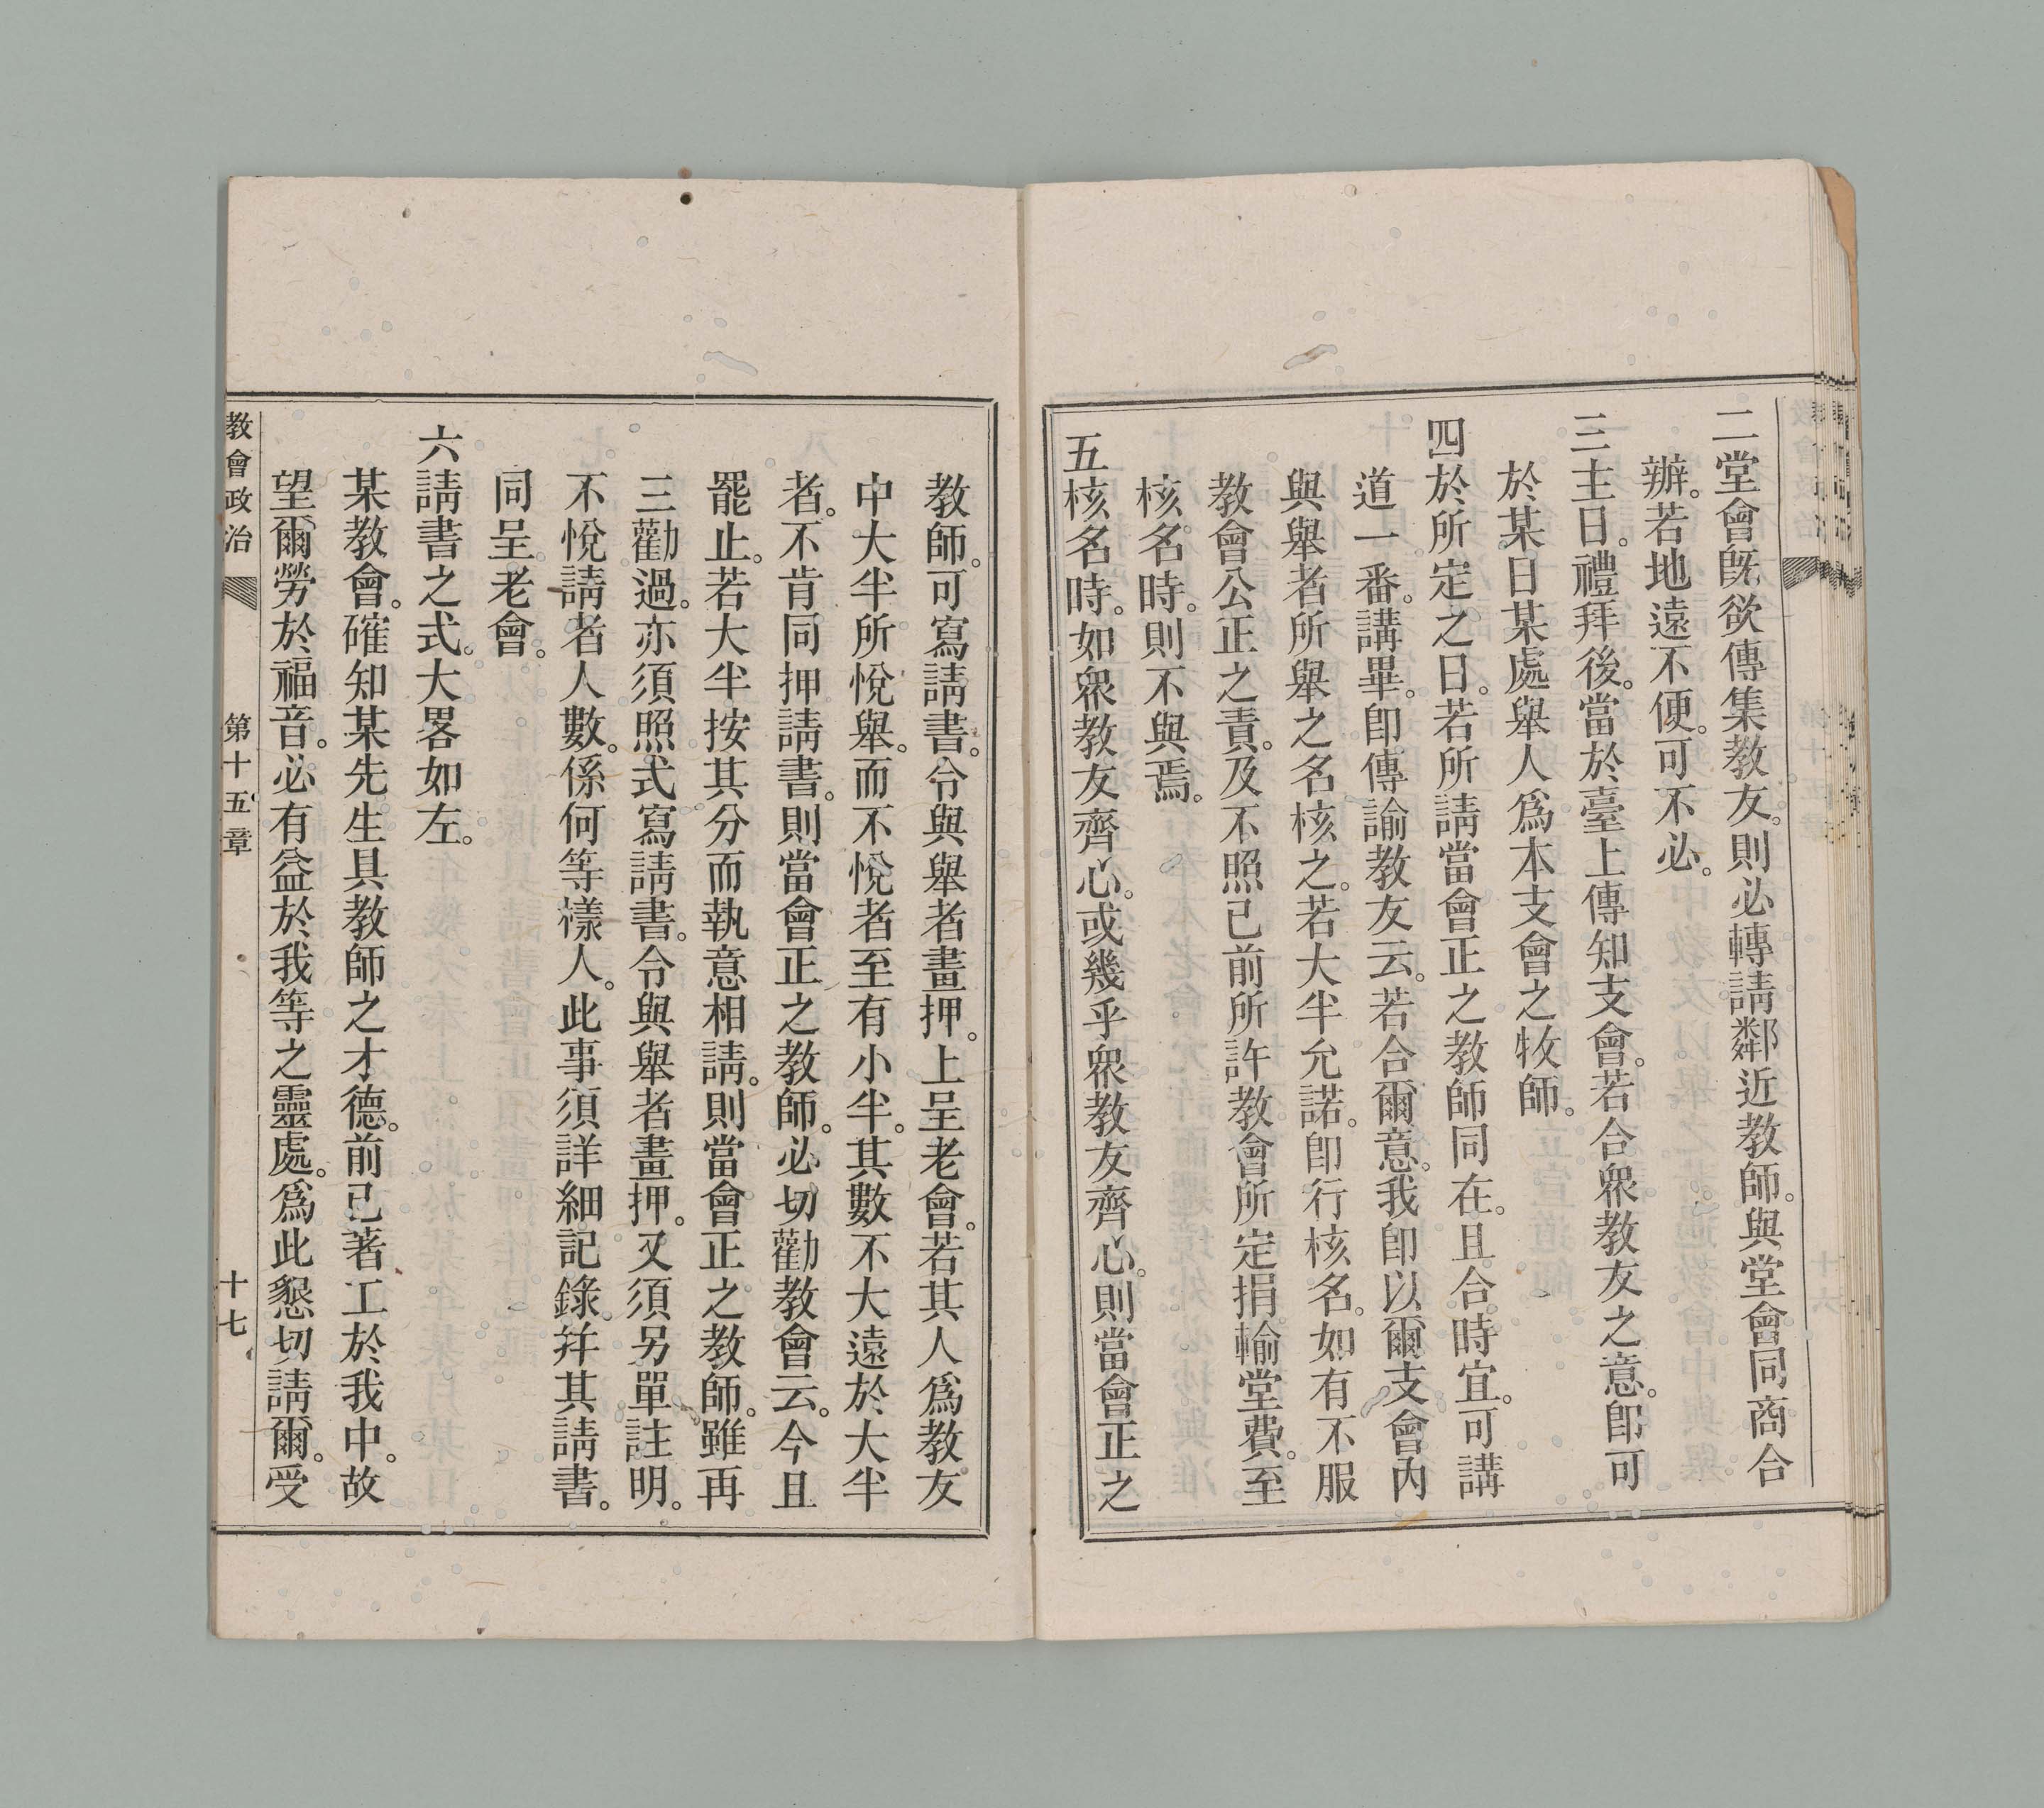 二堂會既欲傳集教友。則必轉請鄰近教師。與堂會同商合
辦。若地遠不便。可不必。
三主日。禮拜後。當於臺上傳知支會。若合衆教友之意。卽可
於某日某處舉人爲本支會之牧師。
四於所定之日。若所請當會正之教師同在。且合時宜。可講
道一番。講畢。卽傳諭教友云。若合爾意。我卽以爾支會內
與舉者所舉之名核之。若大半允諾。卽行核名。如有不服
教會公正之責。及不照已前所許教會所定捐輸堂費。至
核名時。則不與焉。
五核名時。如衆教友齊心。或幾乎衆教友齊心。則當會正之
教師。可寫請書。令與舉者畫押。上呈老會。若其人爲教友
中大半所悅舉。而不悅者至有小半。其數不大遠於大半
者。不肯同押請書。則當會正之教師。必切勸教會云。今且
罷止。若大半按其分而執意相請。則當會正之教師。雖再
三勸過。亦須照式寫請書。令與舉者畫押。又須另單註明。
不悅請者人數。係何等樣人。此事須詳細記錄。幷其請書。
同呈老會。
六請書之式。大畧如左。
某教會。確知某先生具教師之才德。前已著工於我中。故
望爾勞於福音。必有益於我等之靈處。爲此懇切請爾。受
教會政治 第十五章 十七